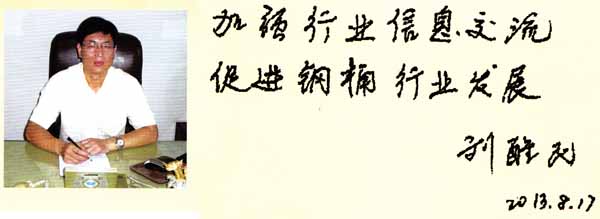 加强行业信息交流
促进钢桶行业发展
刘醒民
2013.8.17